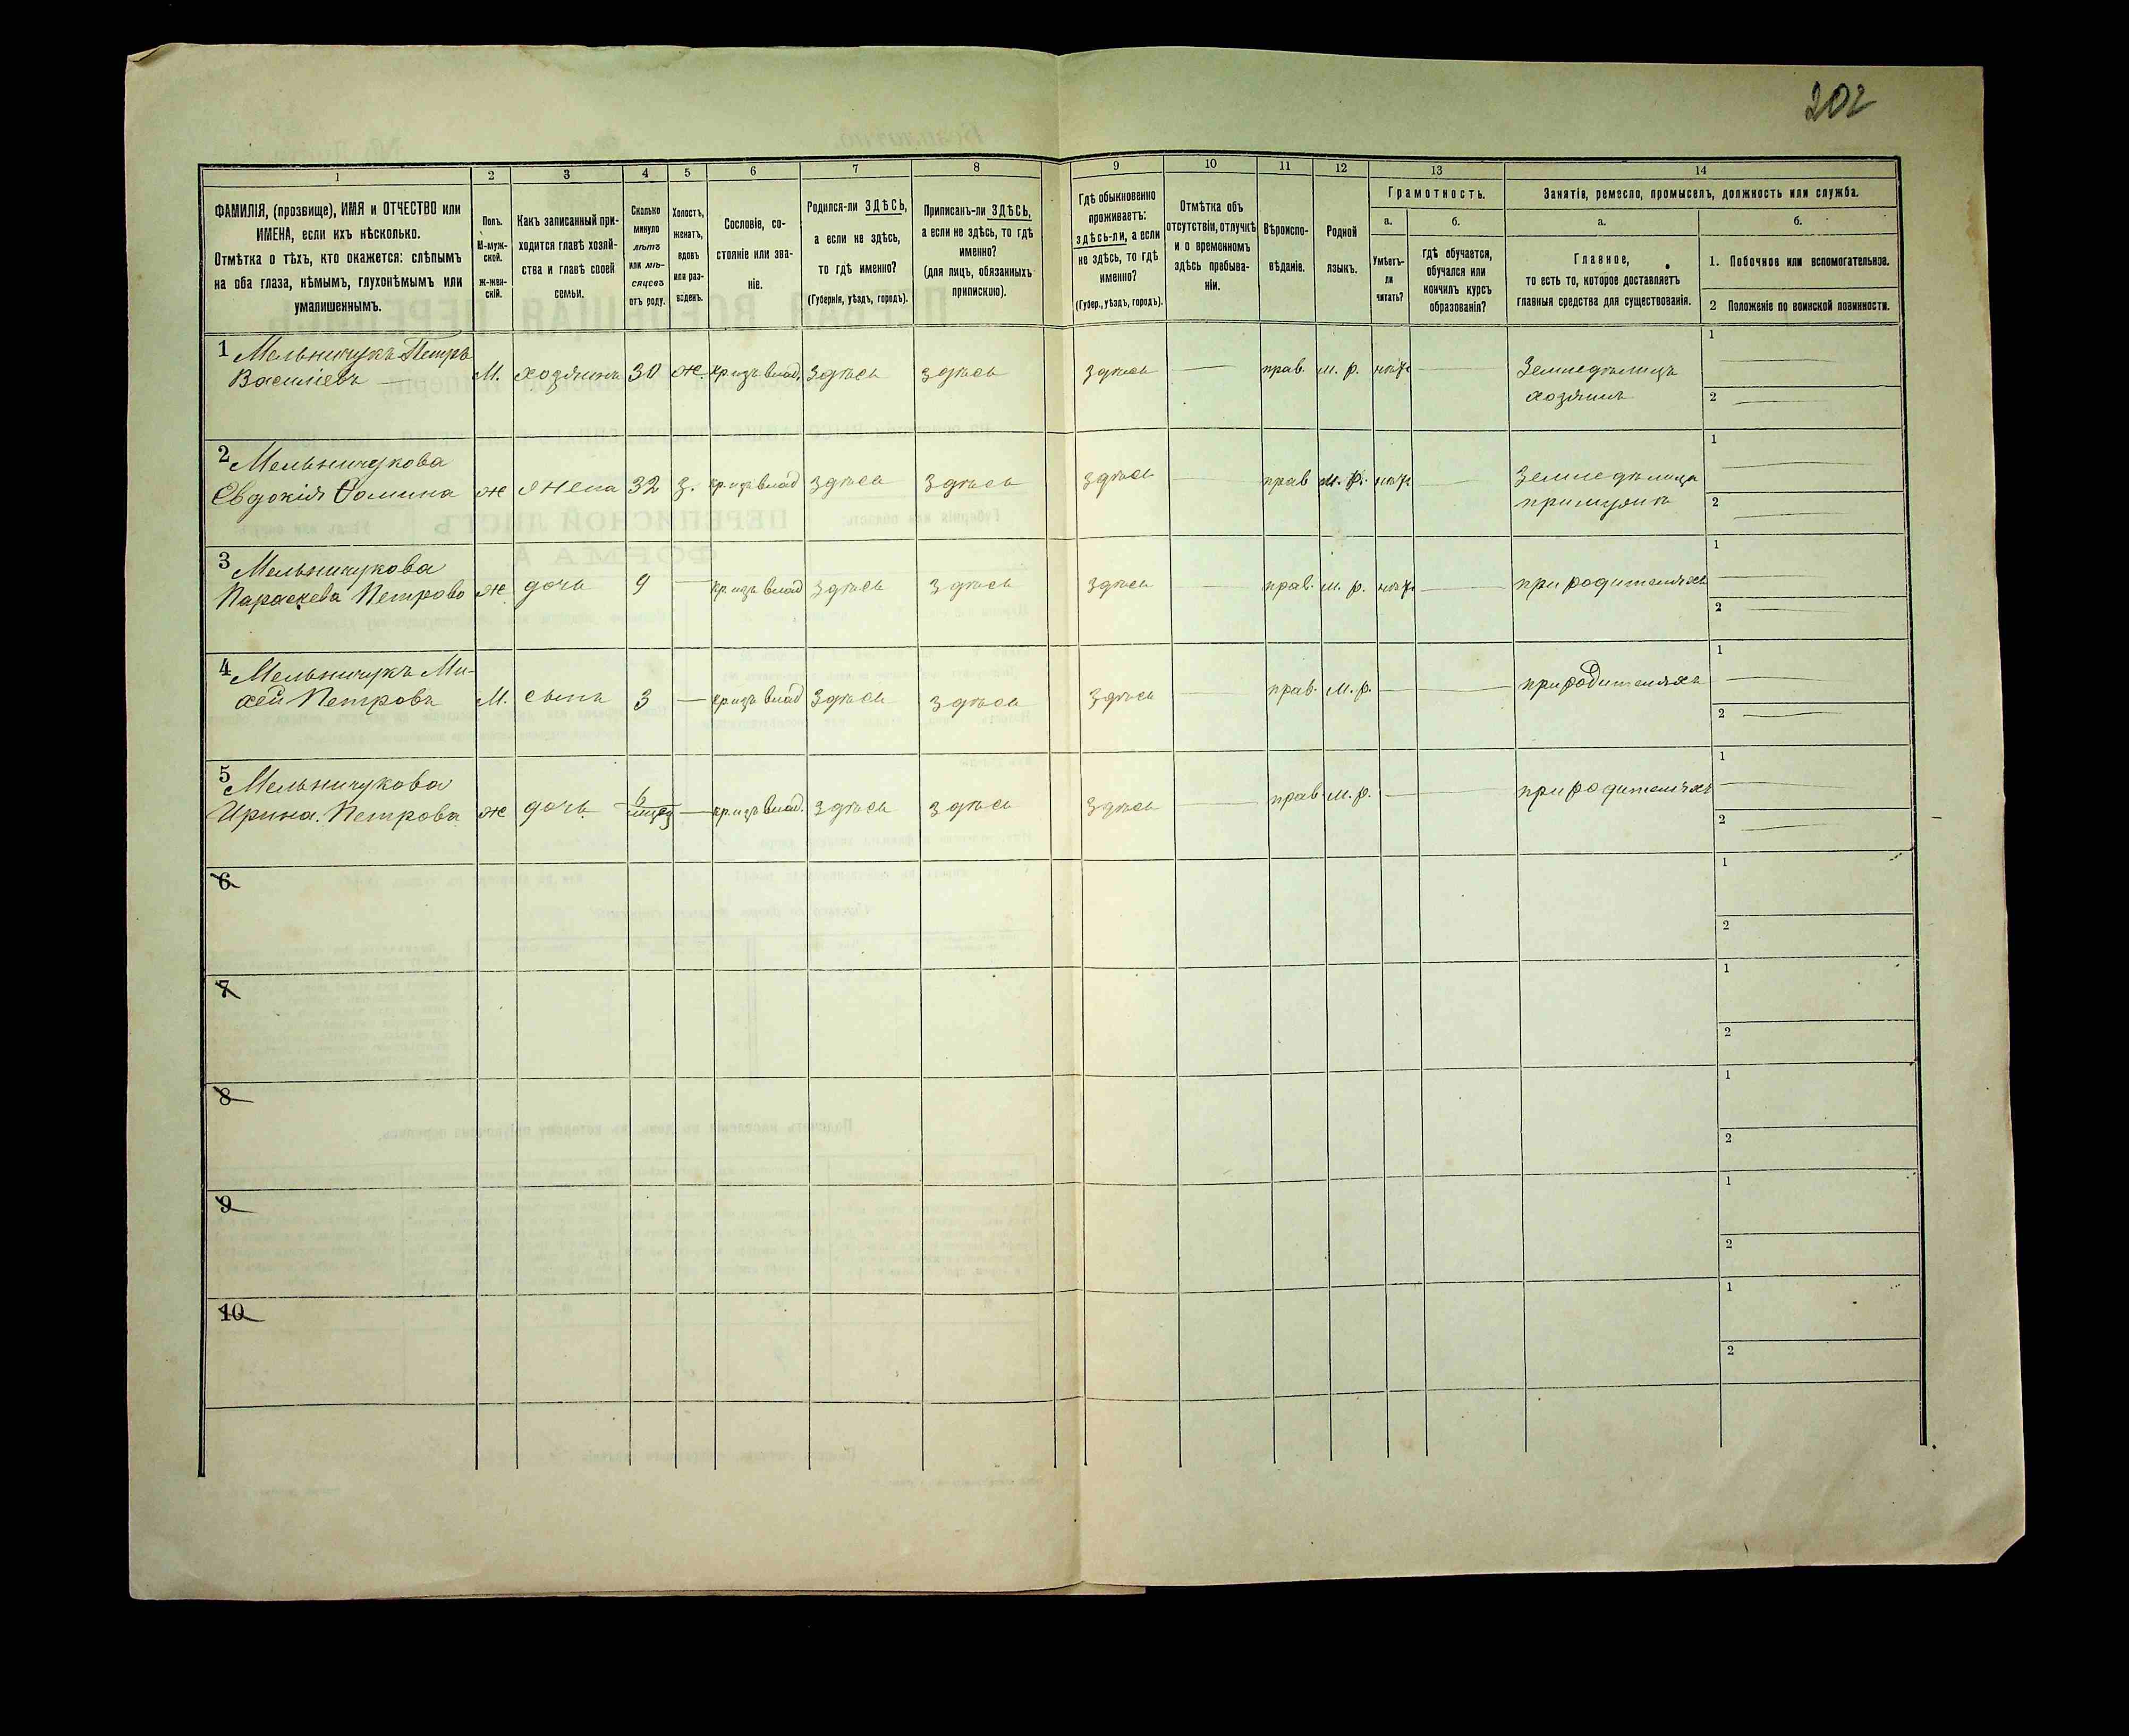 202
1 2 3 4 5 6 7 8 9 10 11 12 13 14
ФАМИЛІЯ, (прозвище), ИМЯ и ОТЧЕСТВО или
ИМЕНА, если ихъ нѣсколько.
Отмѣтка о тѣхъ, кто окажется: слѣпымъ
на оба глаза, нѣмымъ, глухонѣмымъ или
умалишеннымъ.
Полъ.
М-муж-
ской.
Ж-жен-
скій.
Какъ записанный при-
ходится главѣ хозяй-
ства и главѣ своей
семьи.
Сколько
минуло
лѣтъ
или мѣ-
сяцевъ
отъ роду.
Холостъ,
женатъ,
вдовъ
или раз-
веденъ.
Сословіе, со-
стояніе или зва-
ніе.
Родился-ли ЗДѢСЬ,
а если не здѣсь,
то гдѣ именно?
(Губернія, уѣздъ, городъ).
Приписанъ-ли ЗДѢСЬ,
а если не здѣсь, то гдѣ
именно?
(для лицъ, обязанныхъ
припискою).
Гдѣ обыкновенно
проживаетъ:
здѣсь-ли, а если
не здѣсь, то гдѣ
именно?
(Губер., уѣздъ, городъ).
Отмѣтка объ
отсутствіи, отлучкѣ
и о временномъ
здѣсь пребыва-
ніи.
Вѣроиспо-
вѣданіе.
Родной
языкъ.
Грамотность.
а. б.
Умѣетъ-
ли
читать?
гдѣ обучается,
обучался или
кончилъ курсъ
образованія?
Занятія, ремесло, промыселъ, должность или служба.
а. б.
Главное,
то есть то, которое доставляетъ
главныя средства для существованія.
1. Побочное или вспомогательное.
2 Положеніе по воинской повинности.
1 Мельничукъ Петръ 1
Василіевъ М. хозяинъ 30 ж. кр. изъ влад. здѣсь здѣсь здѣсь прав. м. р. нѣтъ Земледѣлецъ
хозяинъ 2
2 Мельничукова 1
Евдокія Фомина ж жена 32 з. кр. изъ влад здѣсь здѣсь здѣсь прав м. р. нѣтъ земледѣлица
при мужѣ 2
3 Мельничукова 1
Параскева Петрова ж дочь 9 кр изъ влад здѣсь здѣсь здѣсь прав. м. р. нѣтъ при родителяхъ
2
4 Мельничукъ Ми- 1
хей Петровъ М. сынъ 3 кр изъ влад здѣсь здѣсь здѣсь прав. м. р. при родителяхъ
2
5 Мельничукова 1
Ирина Петрова ж дочь 6 кр. изъ влад. здѣсь здѣсь здѣсь прав. м. р. при родителяхъ
2
6 1
2
7 1
2
8 1
2
9 1
2
10 1
2